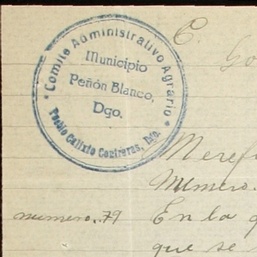 Comité Administrativo Agrario
Municipio
Peñón Blanco,
Dgo.
Pueblo Calixto Contreras, Dgo.
C.
Merefi
número.
numero..79
En la q
que se